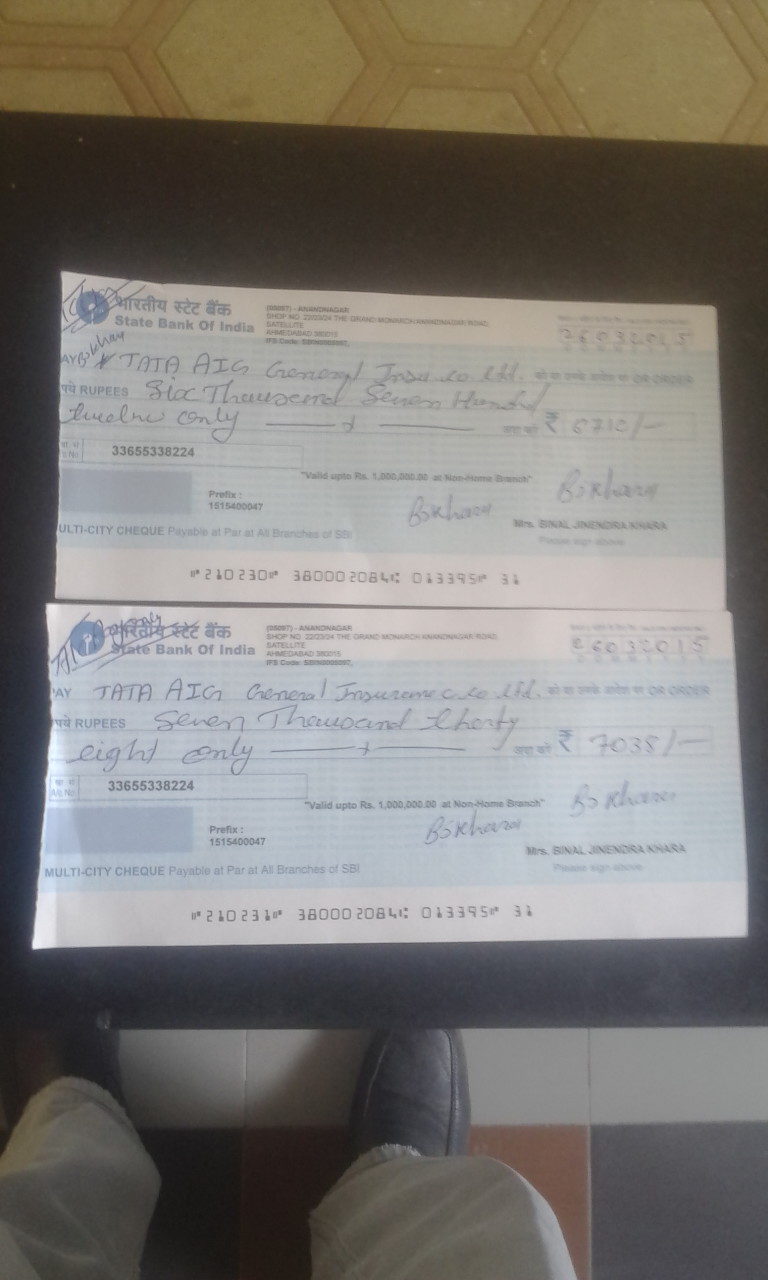 भारतीय स्टेट बैंक
State Bank Of India
(08887) - ANANDNAGAR
SHOP NO. 22/23/24 THE GRAND MONARCH ANANDNAGAR ROAD,
SATELLITE
AHMEDABAD 380015
26032015
TATA AIG General Insu. co. Ltd. OR ORDER
रुपये RUPEES Six Thausend Seven Hundrd
twelve only ₹ 6710/-
33655338224
"Valid upto Rs. 1,000,000.00 at Non-Home Branch"
Prefix :
1515400047
BJKhara BJKhara
Mrs. BINAL JINENDRA KHARA
MULTI-CITY CHEQUE Payable at Par at All Branches of SBI
Please sign above
⑈210230⑈ 380002084⑆ 013395⑈ 31
भारतीय स्टेट बैंक
State Bank Of India
(08887) - ANANDNAGAR
SHOP NO. 22/23/24 THE GRAND MONARCH ANANDNAGAR ROAD,
SATELLITE
AHMEDABAD 380015
26032015
PAY TATA AIG General Insurence Co. Ltd. OR ORDER
रुपये RUPEES Seven Thausand thorty
eight only ₹ 7038/-
A/c No. 33655338224
"Valid upto Rs. 1,000,000.00 at Non-Home Branch"
Prefix :
1515400047
BJKhara BJKhara
Mrs. BINAL JINENDRA KHARA
MULTI-CITY CHEQUE Payable at Par at All Branches of SBI
Please sign above
⑈210231⑈ 380002084⑆ 013395⑈ 31